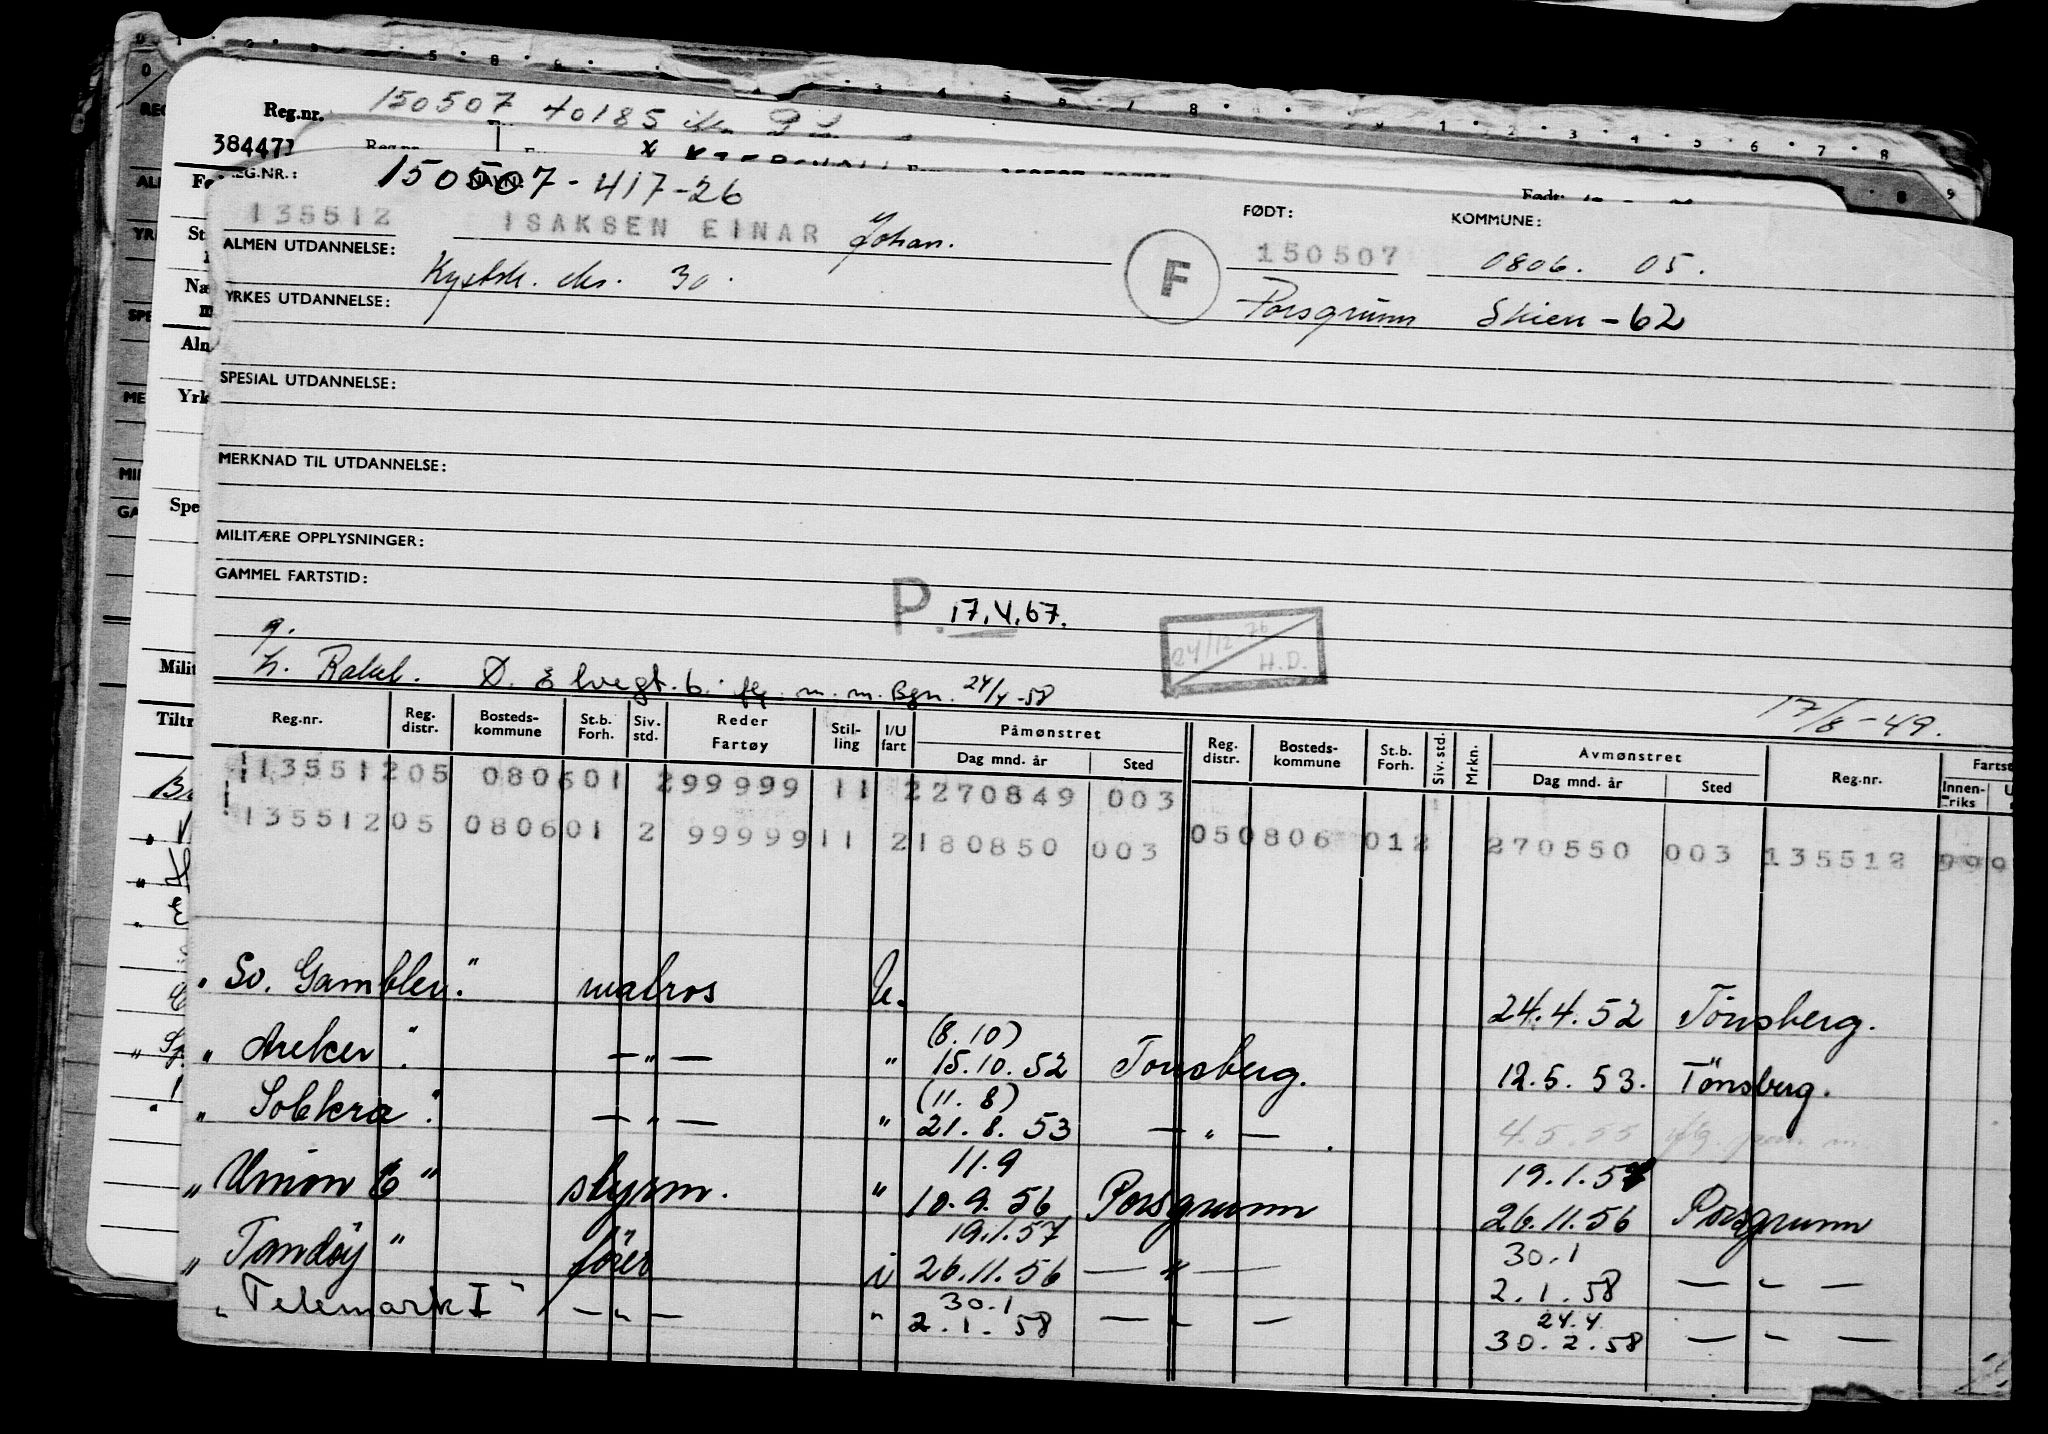 Reg.nr. 150507 40185
384471
REG.NR.: 150507-417-26 NAVN: FØDT: KOMMUNE:
135512 ISAKSEN EINAR Johan. F 150507 0806. 05.
ALMEN UTDANNELSE: Kystsk. eks. 30. Porsgrunn Skien-62
YRKES UTDANNELSE:
SPESIAL UTDANNELSE:
MERKNAD TIL UTDANNELSE:
MILITÆRE OPPLYSNINGER:
GAMMEL FARTSTID:
P. 17.4.67. 24/12-76 H.D.
g.
h. Rakel. Ø. Elvegt. 6. m. m. Bgn. 24/4-58
17/8-49.
Reg.nr. Reg. distr. Bosteds-kommune St.b. Forh. Siv. std. Reder Fartøy Stil-ling I/U fart Påmønstret Dag mnd. år Sted Reg. distr. Bosteds-kommune St.b. Forh. Siv. std. Mrkn. Avmønstret Dag mnd. år Sted Reg.nr. Innen-riks
135512 05 0806 01 2 99999 11 2 270849 003
135512 05 0806 01 2 99999 11 2 180850 003 05 0806 01 2 270550 003 135512 999
" So. Gambler." matros u. 24.4.52 Tönsberg.
(8.10)
" Aeker " — " — " 15.10.52 Tönsberg. 12.5.53. Tönsberg.
(11.8)
" Solkra " — " — " 21.8.53 — " — . 4.5.55
11.9 19.1.57
" Union E " styrm. " 10.9.56 Porsgrunn 26.11.56 Porsgrunn
19.1.57 30.1
" Tandöy " förer i 26.11.56 — " — 2.1.58 — " —
30.1 24.4
" Telemark I " — " — " 2.1.58 — " — 30.2.58 — " —